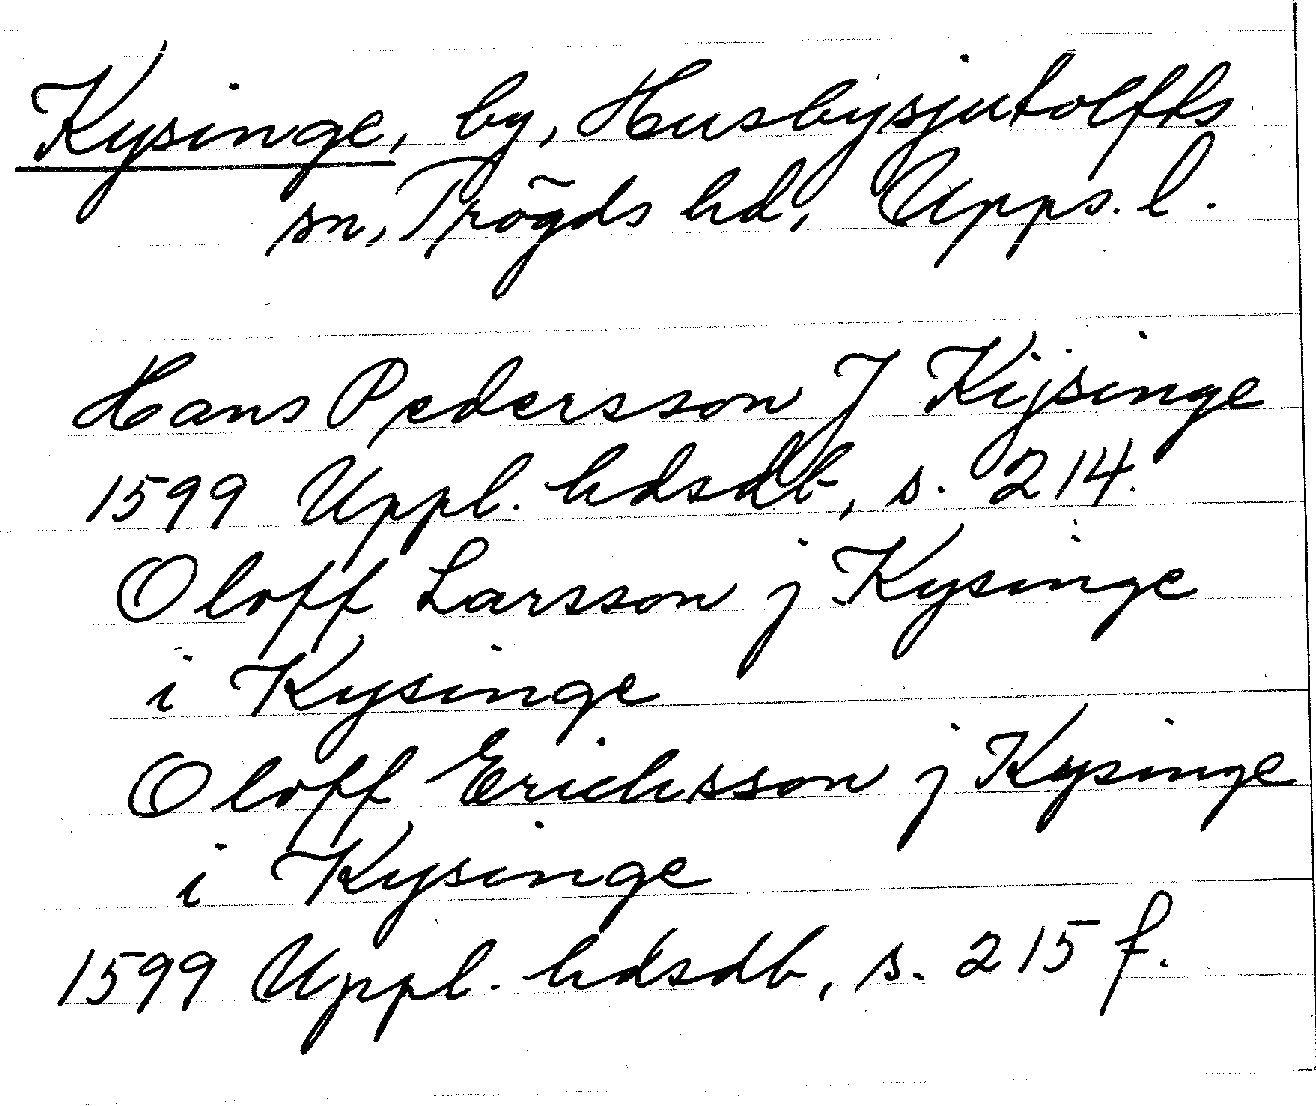 Kysinge, by, Husbysjutolfts
sn, Trögds hd, Upps. l.
Hans Pedersson J Kijsinge
1599 Uppl. hdsdb, s. 214.
Oloff Larsson j Kysinge
i Kysinge
Oloff Ericksson j Kysinge
i Kysinge
1599 Uppl. hdsdb, s. 215 f.